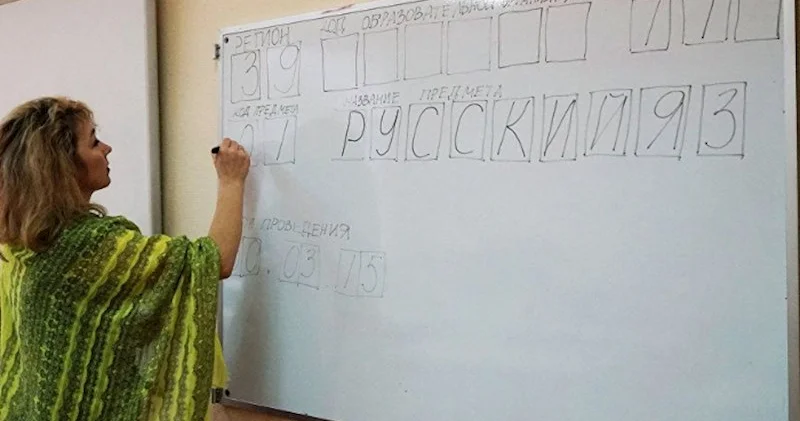 РЕГИОН КОД ОБРАЗОВАТЕЛЬНОЙ
39 11
КОД ПРЕДМЕТА НАЗВАНИЕ ПРЕДМЕТА
01 РУССКИЙ ЯЗ
ПРОВЕДЕНИЯ
03.15